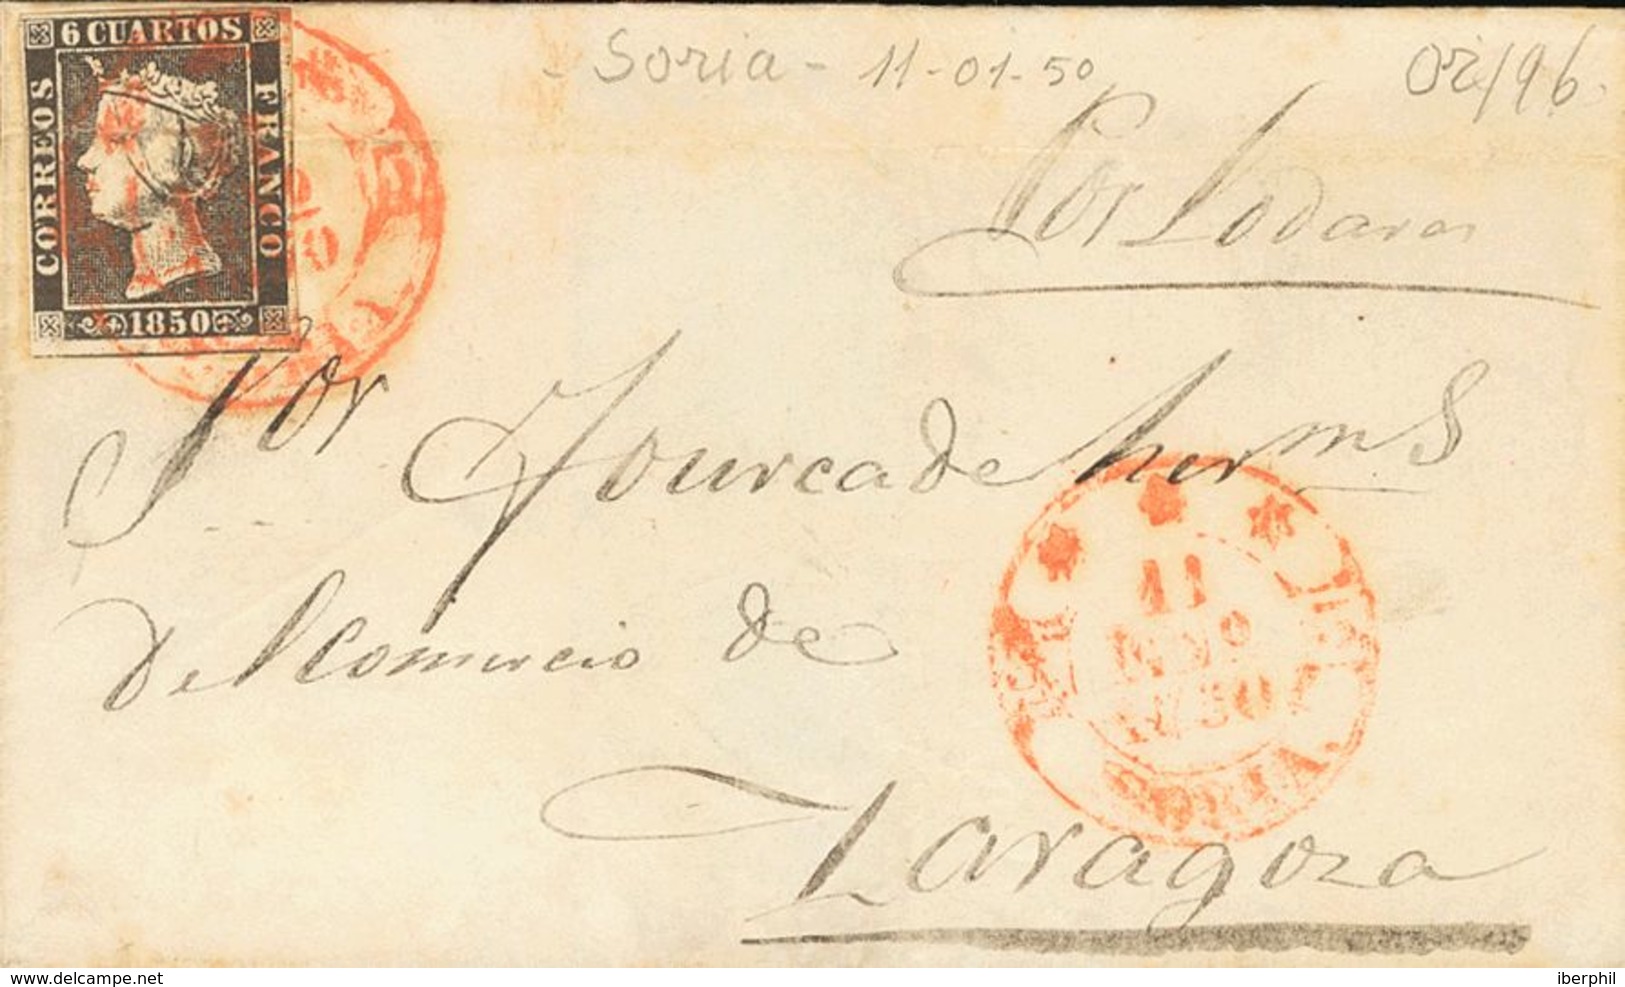 6 CUARTOS
CORREOS
FRANCO
1850
- Soria - 11-01-50
Por Lodares
Sor Jourcade herms
Del Comercio de
Zaragoza
11
1850
SORIA.
delcampe.net
iberphil